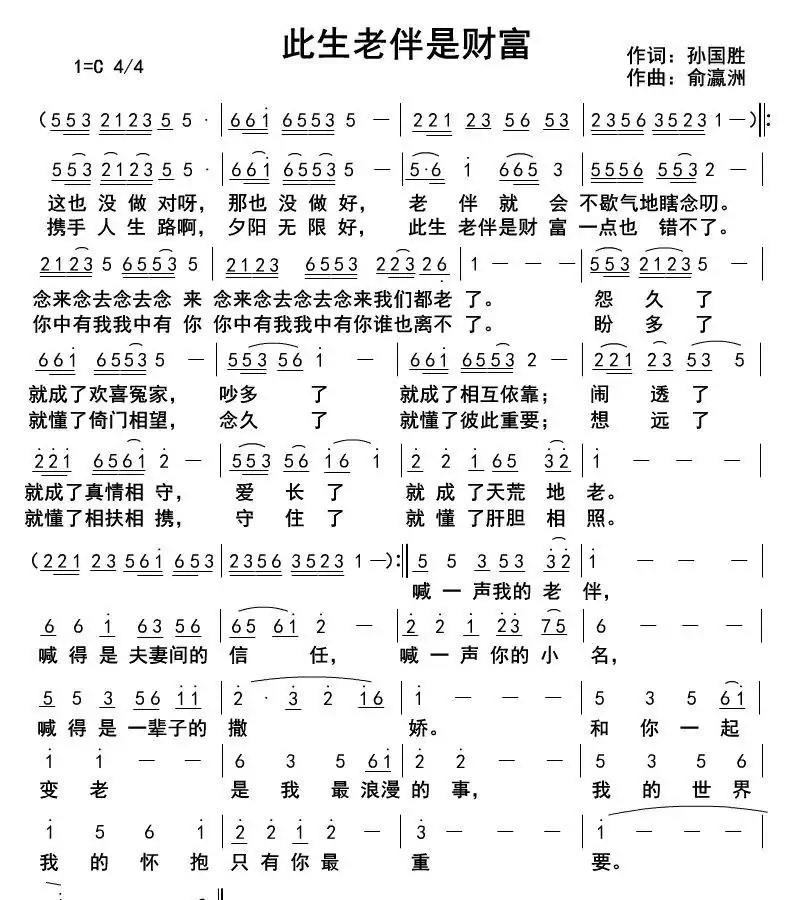 此生老伴是财富
1=C 4/4
作词：孙国胜
作曲：俞瀛洲
(553 2123 5 5 · | 661 6553 5 — | 221 23 56 53 | 2356 3523 1 —):
553 2123 5 5 · | 661 6553 5 — | 5·6 1 665 3 | 55556 553 2 — |
这也 没 做 对呀， 那也 没 做 好， 老 伴 就 会 不歇气地瞎念叨。
携手 人 生 路啊， 夕阳 无 限 好， 此生 老伴是财 富 一点也 错不了。
2123 5 6553 5 | 2123 6553 2232 26 | 1 — — — | 553 2123 5 — |
念来念去念去念 来 念来念去念去念来我们都老 了。 怨 久 了
你中有我我中有 你 你中有我我中有你谁也离不 了。 盼 多 了
661 6553 5 — | 553 56 1 — | 661 6553 2 — | 221 23 53 5 |
就成了欢喜冤家， 吵多 了 就成了相互依靠； 闹 透 了
就懂了倚门相望， 念久 了 就懂了彼此重要； 想 远 了
221 6561 2 — | 553 56 16 1 | 2 2 1 65 32 | 1 — — — |
就成了真情相 守， 爱 长 了 就 成 了天荒 地 老。
就懂了相扶相 携， 守 住 了 就 懂 了肝胆 相 照。
(221 23 561 653 | 2356 3523 1 —): 5 5 3 53 32 | 1 — — — |
喊 一 声我的 老 伴，
6 6 1 63 56 | 65 61 2 — | 2 2 1 23 75 | 6 — — — |
喊 得 是 夫妻间的 信 任， 喊 一 声 你的 小 名，
5 5 3 56 11 | 2 · 3 2 16 | 1 — — — | 5 3 5 61 |
喊 得 是 一辈子的 撒 娇。 和 你 一 起
1 1 — — | 6 3 5 61 | 2 2 — — | 5 3 5 6 |
变 老 是 我 最 浪漫 的 事， 我 的 世 界
1 5 6 1 | 2 2 1 2 — | 3 — — — | 1 — — — |
我 的 怀 抱 只 有 你 最 重 要。